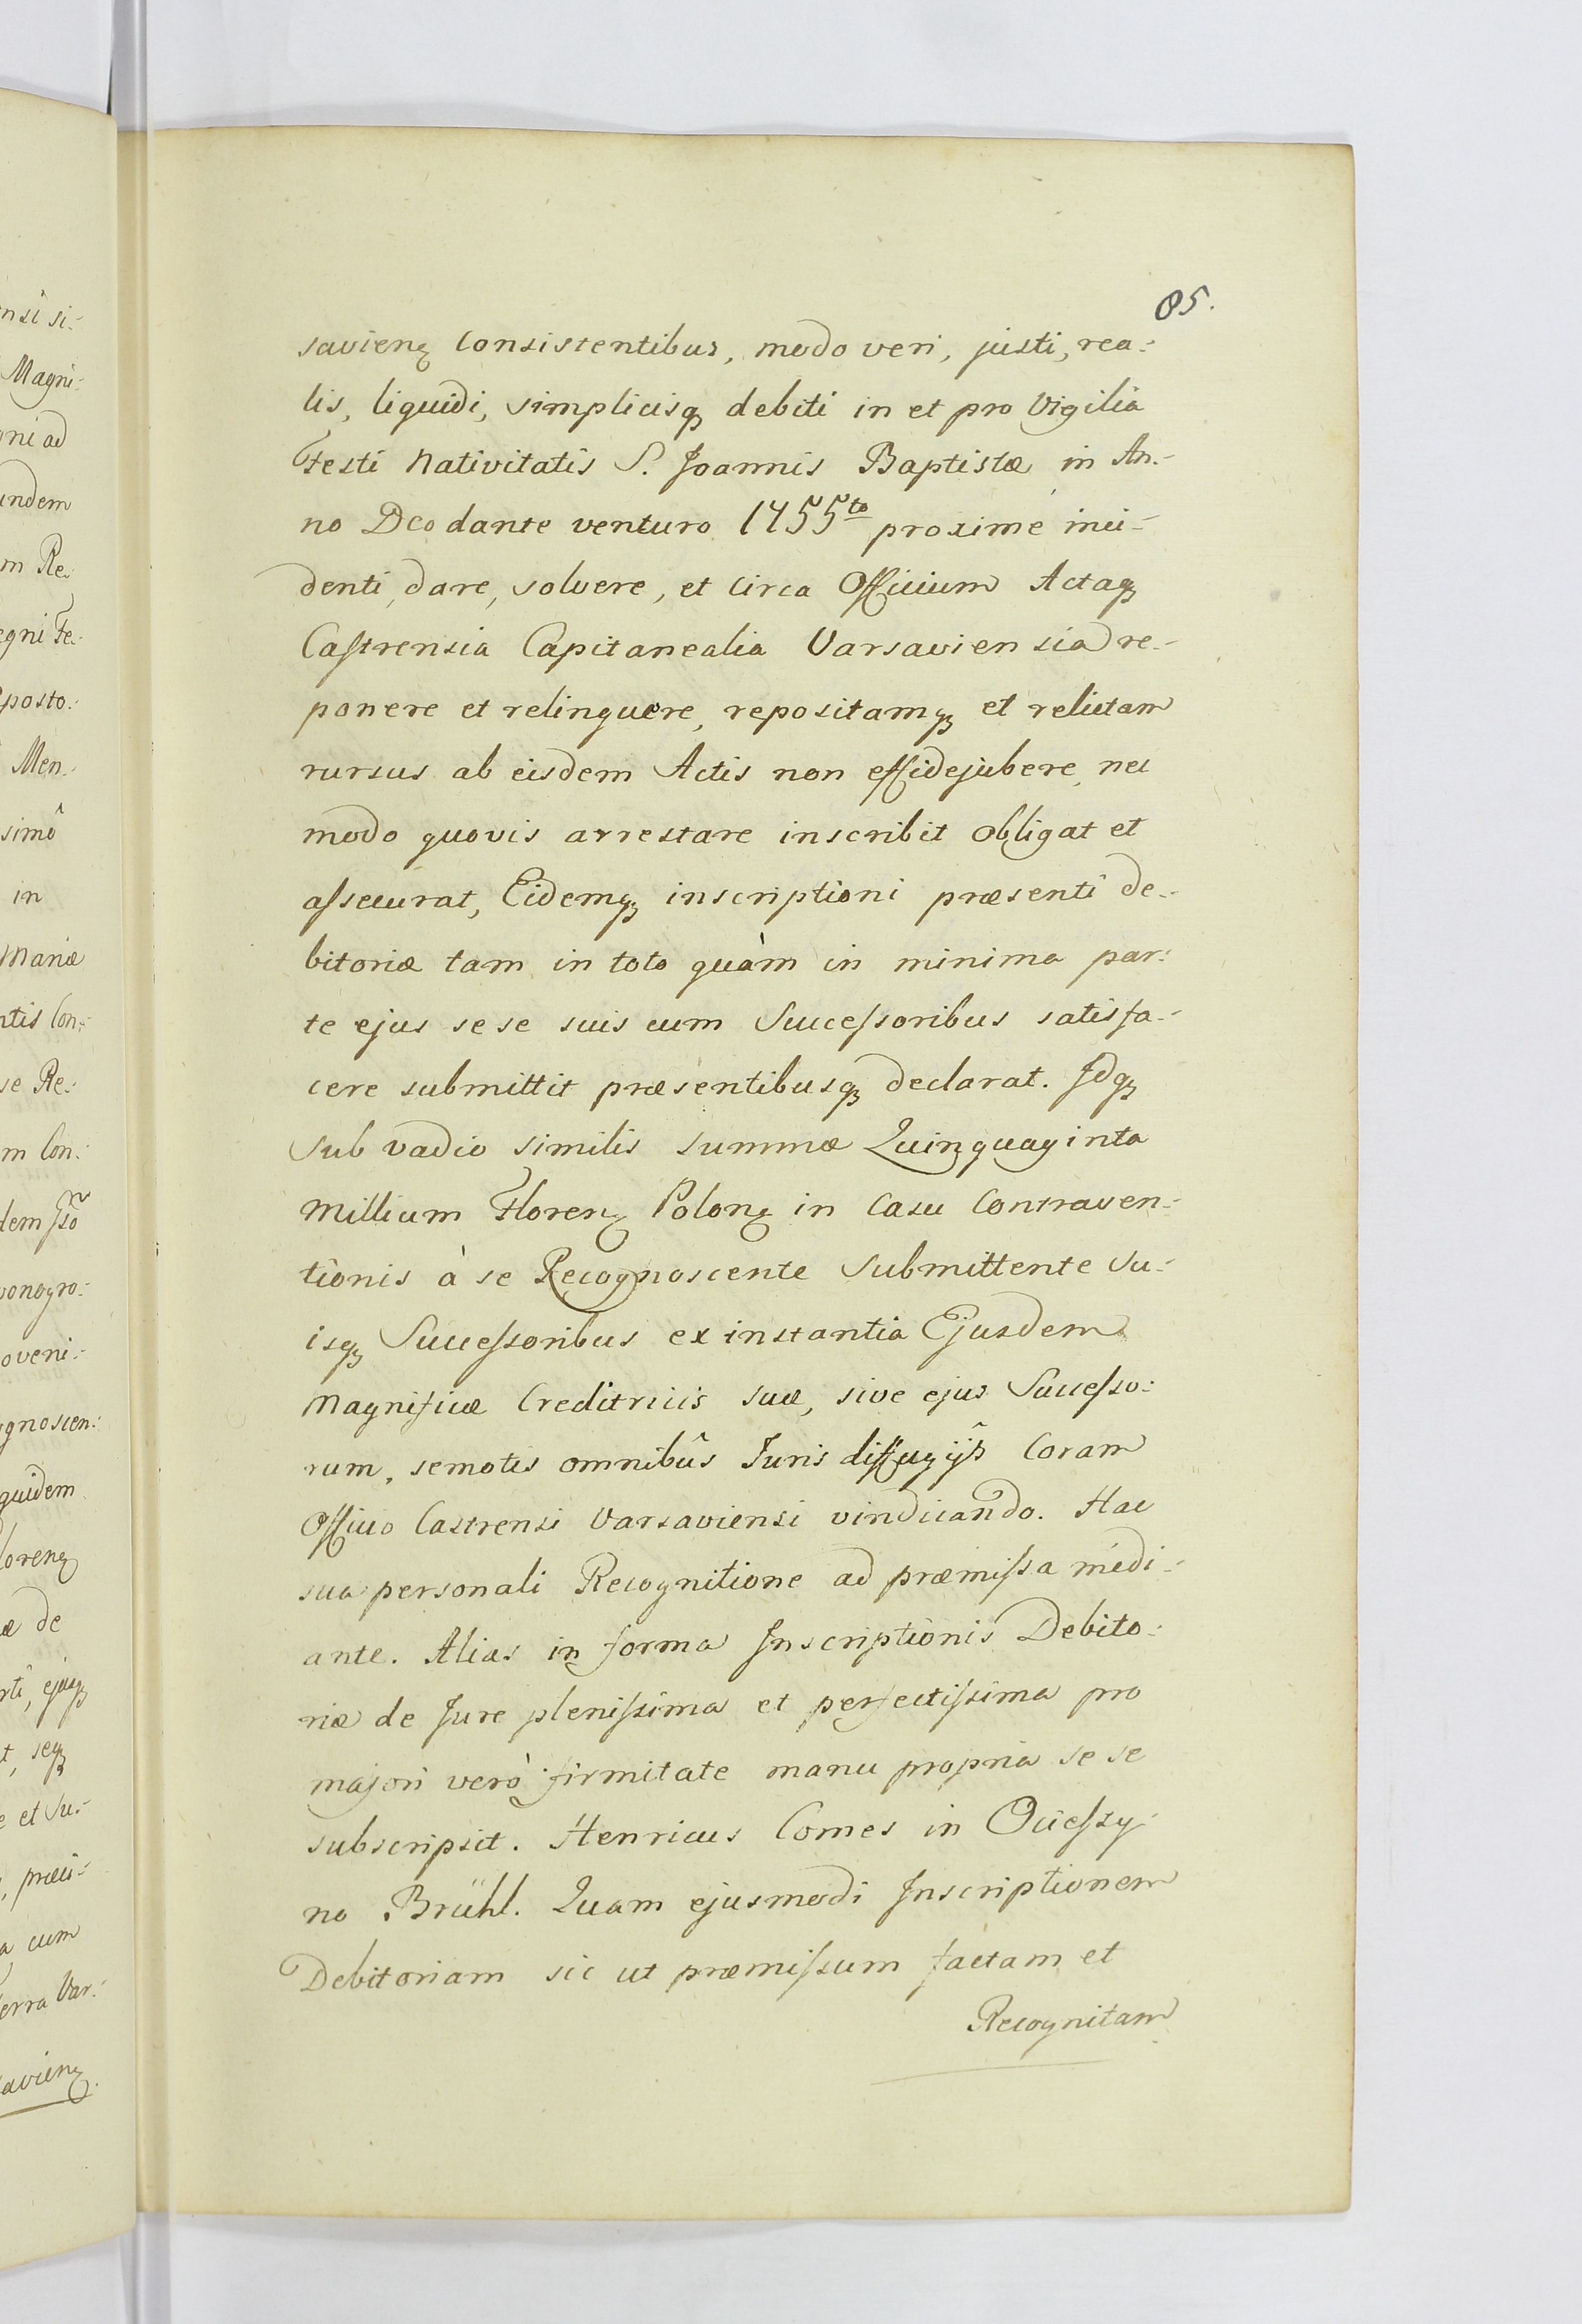 85.
savienꝫ Consistentibus, modo veri, justi, rea-
lis, liquidi, simplicisqꝫ debiti in et pro Vigilia
Festi Nativitatis S. Joannis Baptistæ in An-
no Deo dante venturo 1755to proximè inci-
denti, dare, solvere, et circa Officium Actaqꝫ
Castrensia Capitanealia Varsaviensia re-
ponere et relinquere, repositamqꝫ et relictam
rursus ab eisdem Actis non effidejubere, nec
modo quovis arrestare inscribit obligat et
assecurat, Eidemqꝫ inscriptioni præsenti de-
bitoriæ tam in toto quàm in minima par-
te ejus se se suis cum Successoribus satisfa-
cere submittit præsentibusqꝫ declarat. Idqꝫ
sub vadio similis summæ Quinquaginta
Millium Florenꝫ Polonꝫ in Casu Contraven-
tionis à se Recognoscente Submittente su-
isqꝫ Successoribus ex instantia Ejusdem
Magnificæ Creditricis suæ, sive ejus Successo-
rum, semotis omnibûs Juris diffugijs Coram
Officio Castrensi Varsaviensi vindicando. Hac
sua personali Recognitione ad præmissa medi-
ante. Alias in forma Inscriptionis Debito-
riæ de Jure plenissima et perfectissima pro
majori verò firmitate manu propria se se
subscripsit. Henricus Comes in Ocieszy-
no Brühl. Quam ejusmodi Inscriptionem
Debitoriam sic ut præmissum factam et
Recognitam